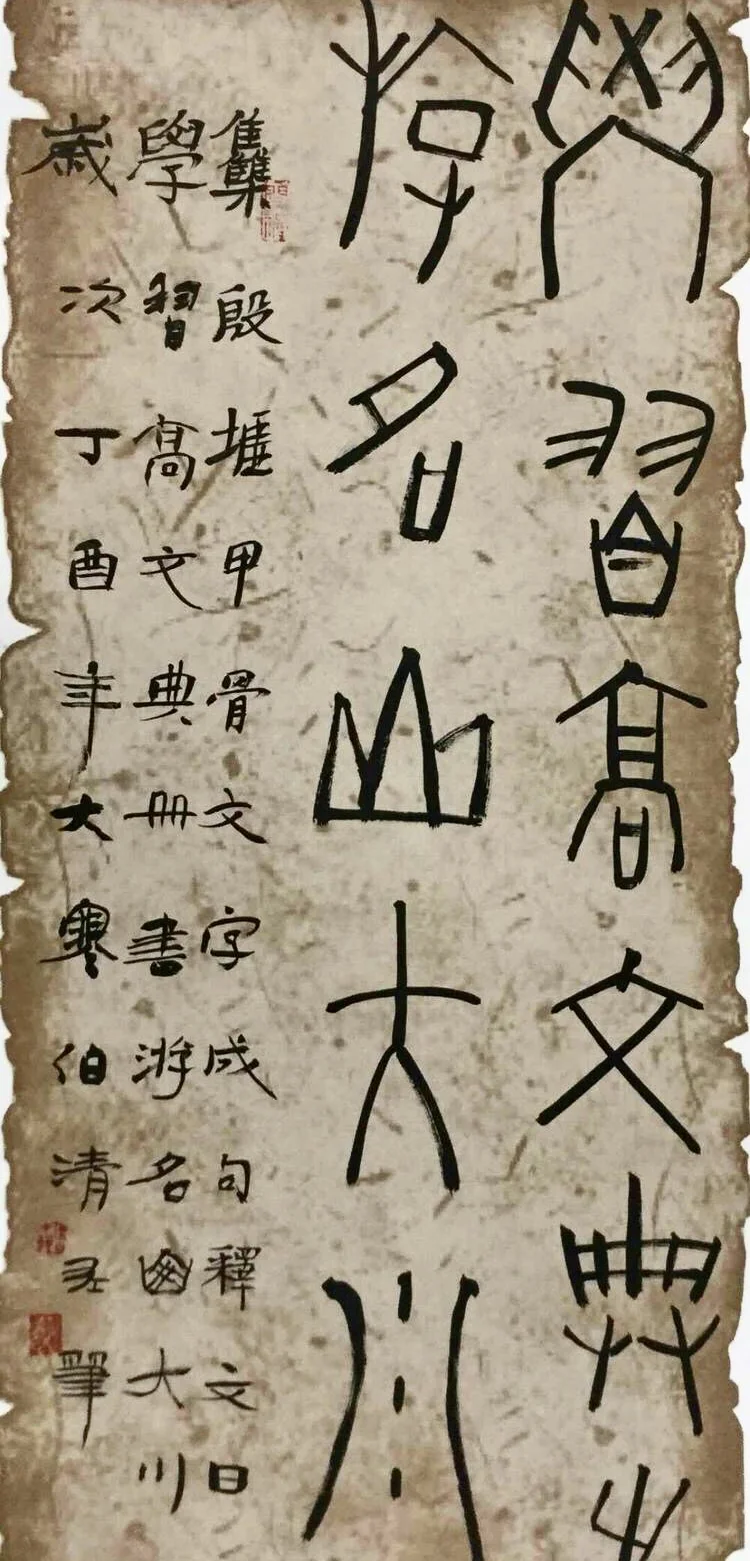 學習高文典
游名山大川
雧殷墟甲骨文字成句釋文曰
學習高文典冊書游名山大川
歲次丁酉年大寒伯清左筆